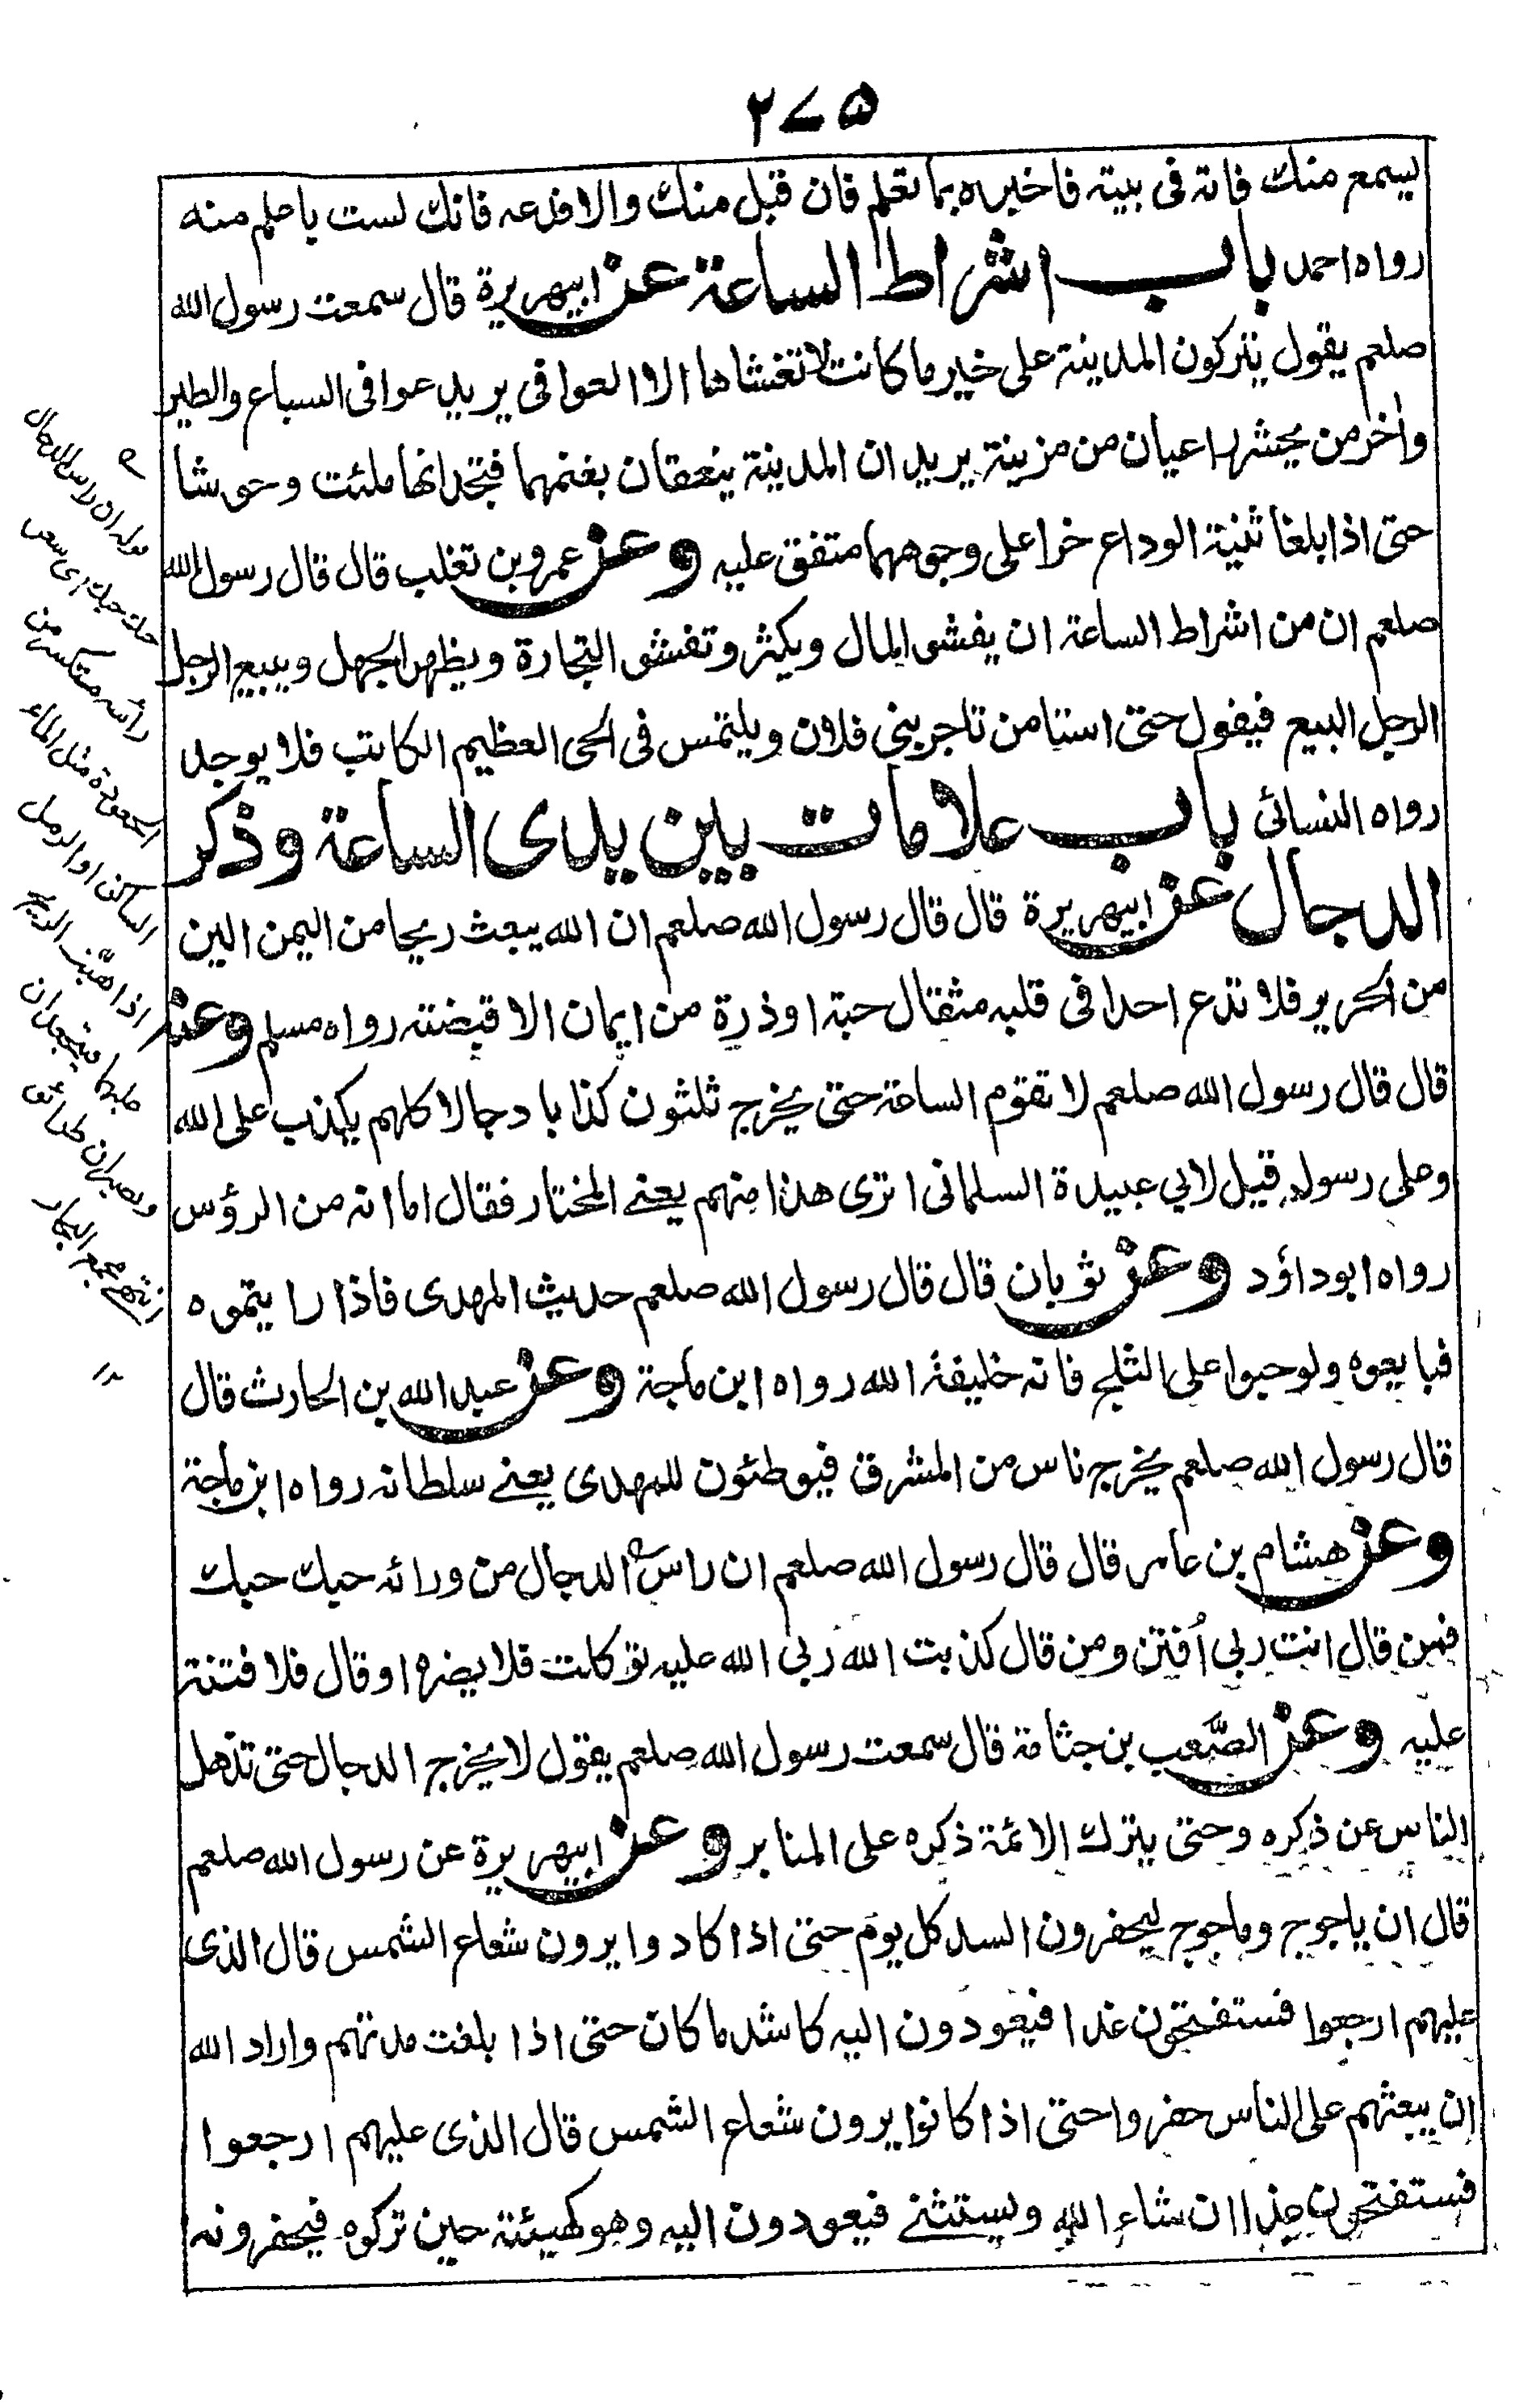 ٢٧٥
يسمع منك فانه فى بيته فاخبره بما تعلم فان قبل منك والا فدعه فانك لست باعلم منه
رواه احمد باب اشراط الساعة عن ابيهريرة قال سمعت رسول الله
صلعم يقول يتركون المدينة على خير ما كانت لا تغشاها الا العوافى يريد عوافى السباع والطير
وأخر من يحشر راعيان من مزينة يريدان المدينة ينعقان بغنمهما فيجدانها ملئت وحوشا
حتى اذا بلغا ثنية الوداع خرا على وجوههما متفق عليه وعن عمرو بن تغلب قال قال رسول الله
صلعم ان من اشراط الساعة ان يفشو المال ويكثر وتفشو التجارة ويظهر الجهل ويبيع الرجل
الرجل البيع فيقول حتى استامن تاجر بنى فلان ويلتمس فى الحى العظيم الكاتب فلا يوجد
رواه النسائى باب علامات بين يدى الساعة وذكر
الدجال عن ابيهريرة قال قال رسول الله صلعم ان الله يبعث ريحا من اليمن الين
من الحرير فلا تدع احدا فى قلبه مثقال حبة او ذرة من ايمان الا قبضته رواه مسلم وعنه
قال قال رسول الله صلعم لا تقوم الساعة حتى يخرج ثلثون كذابا دجالا كلهم يكذب على الله
وعلى رسوله قيل لابي عبيدة السلمانى اترى هذا منهم يعنے المختار فقال اما انه من الرؤس
رواه ابوداؤد وعن ثوبان قال قال رسول الله صلعم حديث المهدى فاذا رايتموه
فبايعوه ولو حبوا على الثلج فانه خليفة الله رواه ابن ماجة وعن عبد الله بن الحارث قال
قال رسول الله صلعم يخرج ناس من المشرق فيوطئون للمهدى يعنے سلطانه رواه ابن ماجة
وعن هشام بن عامر قال قال رسول الله صلعم ان راس الدجال من ورائه حبك حبك
فمن قال انت ربى اُفتتن ومن قال كذبت الله ربى الله عليه توكلت فلا يضره او قال فلا فتنة
عليه وعن الصَّعب بن جثامة قال سمعت رسول الله صلعم يقول لا يخرج الدجال حتى تذهل
الناس عن ذكره وحتى يترك الائمة ذكره على المنابر وعن ابيهريرة عن رسول الله صلعم
قال ان ياجوج وماجوج ليحفرون السد كل يوم حتى اذا كادوا يرون شعاع الشمس قال الذى
عليهم ارجعوا فستفتحون غدا فيعودون اليه كاشد ما كان حتى اذا بلغت مدتهم واراد الله
ان يبعثهم على الناس حفروا حتى اذا كانوا يرون شعاع الشمس قال الذى عليهم ارجعوا
فستفتحون غدا ان شاء الله ويستثنے فيعودون اليه وهو كهيئته حين تركوه فيحفرونه
قوله ان راس الدجال
حبك حبك اى شعر
رأسه متكسر من
الجعودة مثل الماء
الساكن او الرمل
اذا هبّت الريح
عليهما فيتجعدان
ويصيران طرائق
انتهے مجمع البحار
١٢